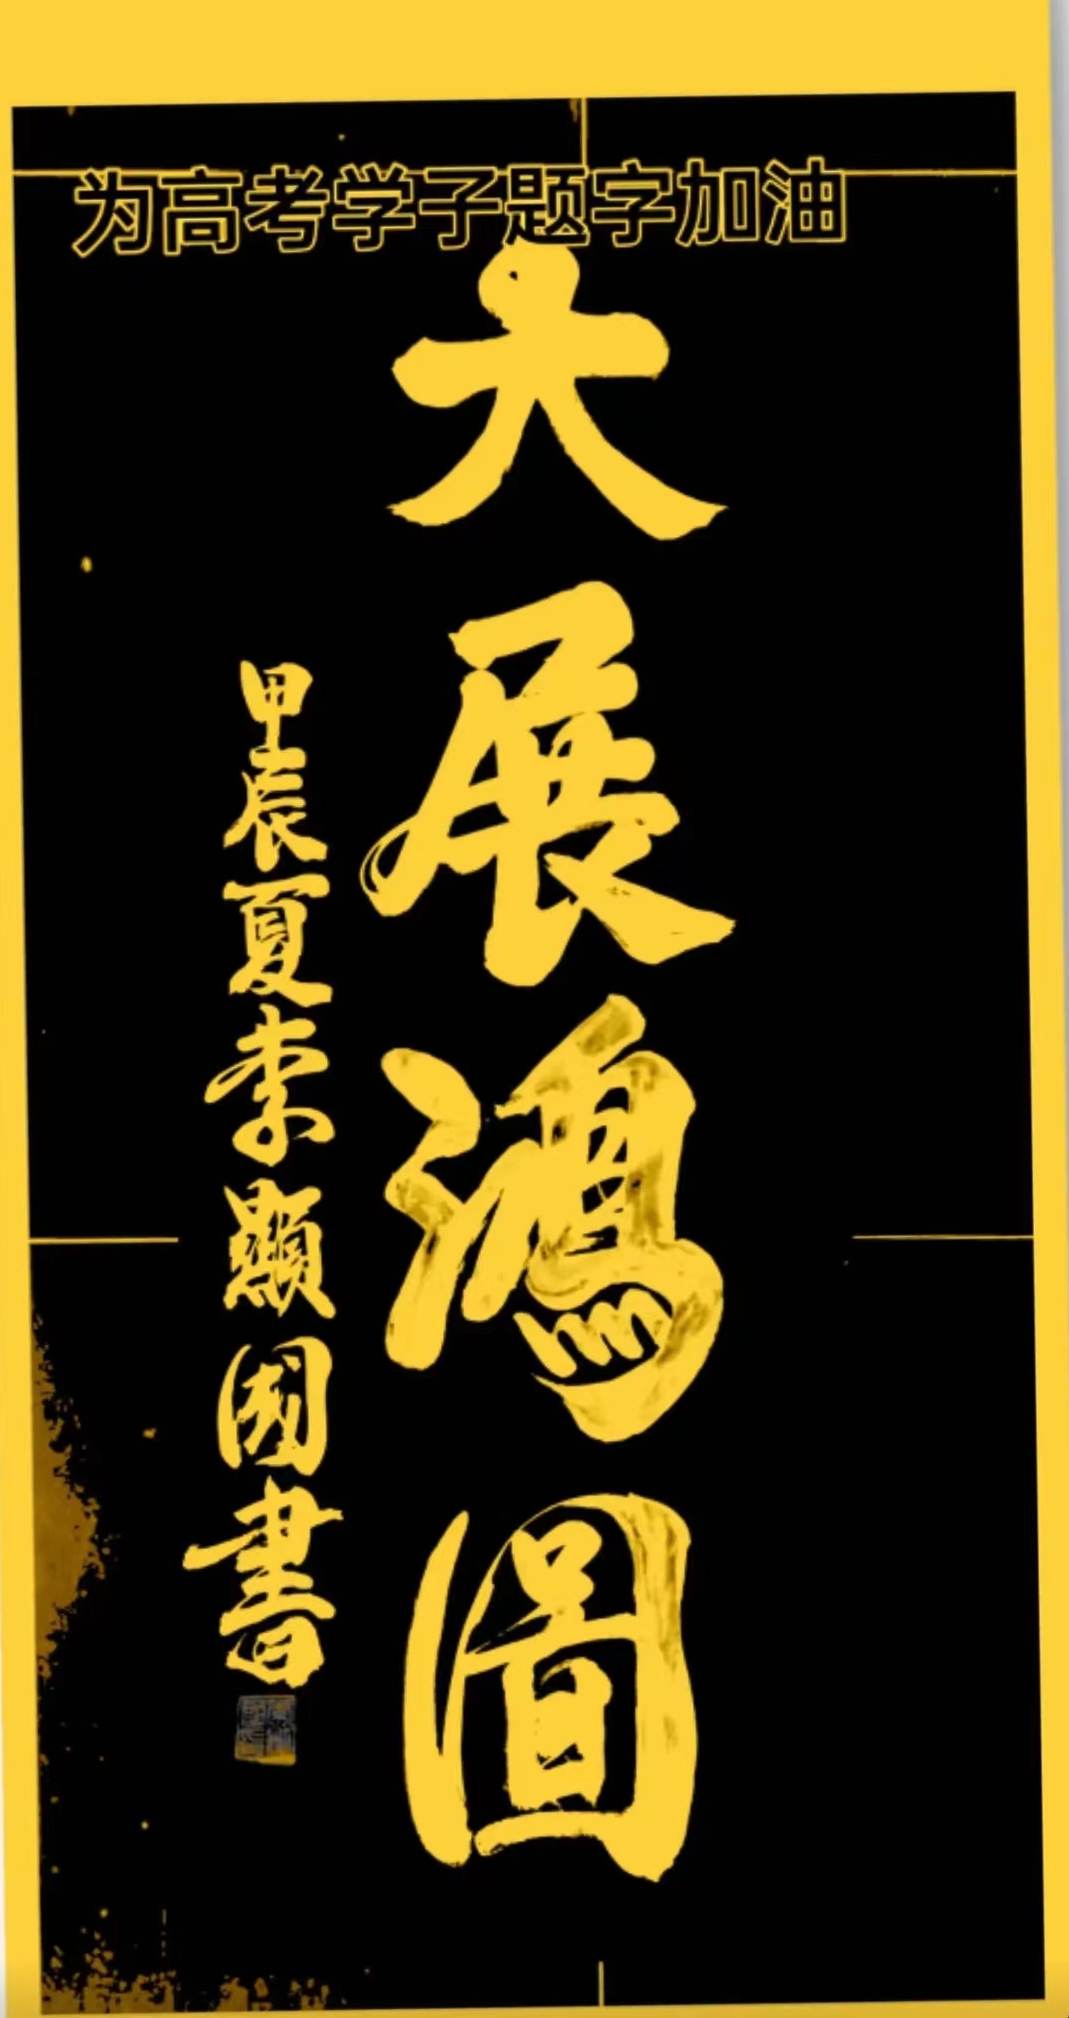 为高考学子题字加油
大展鴻圖
甲辰夏李顯国書